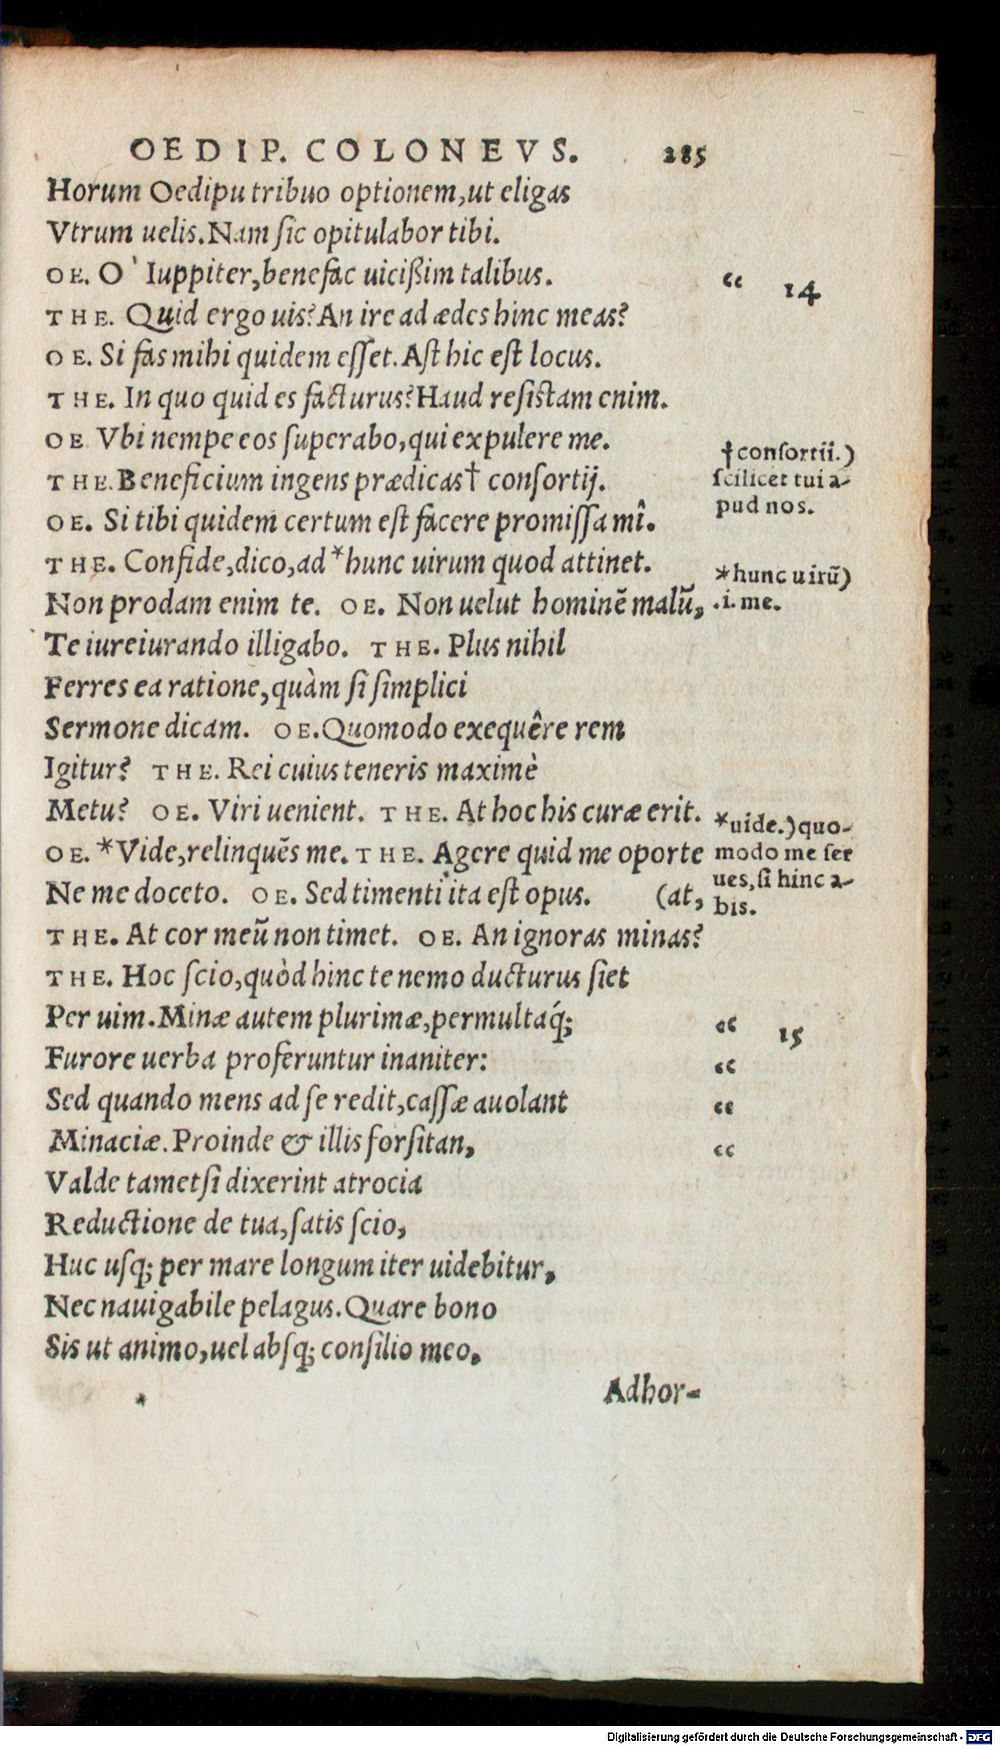 OEDIP. COLONEVS. 285
Horum Oedipu tribuo optionem, ut eligas
Vtrum uelis. Nam sic opitulabor tibi.
OE. O' Iuppiter, benefac uicißim talibus. “ 14
THE. Quid ergo uis? An ire ad ædes hinc meas?
OE. Si fas mihi quidem esset. Ast hic est locus.
THE. In quo quid es facturus? Haud resistam enim.
OE Vbi nempe eos superabo, qui expulere me.
THE. Beneficium ingens prædicas† consortij.
OE. Si tibi quidem certum est facere promissa mî.
THE. Confide, dico, ad *hunc uirum quod attinet.
Non prodam enim te. OE. Non uelut hominē malū,
Te iureiurando illigabo. THE. Plus nihil
Ferres ea ratione, quàm si simplici
Sermone dicam. OE. Quomodo exequêre rem
Igitur? THE. Rei cuius teneris maximè
Metu? OE. Viri uenient. THE. At hoc his curæ erit.
OE. *Vide, relinquēs me. THE. Agere quid me oporte
Ne me doceto. OE. Sed timenti ita est opus. (at,
THE. At cor meū non timet. OE. An ignoras minas?
THE. Hoc scio, quòd hinc te nemo ducturus siet
Per uim. Minæ autem plurimæ, permultaq́; “ 15
Furore uerba proferuntur inaniter: “
Sed quando mens ad se redit, cassæ auolant “
Minaciæ. Proinde & illis forsitan, “
Valde tametsi dixerint atrocia
Reductione de tua, satis scio,
Huc usq; per mare longum iter uidebitur,
Nec nauigabile pelagus. Quare bono
Sis ut animo, uel absq; consilio meo,
Adhor-
†consortii.)
scilicet tui a-
pud nos.
*hunc uirū)
.i. me.
*uide.) quo-
modo me ser
ues, si hinc a-
bis.
Digitalisierung gefördert durch die Deutsche Forschungsgemeinschaft - DFG